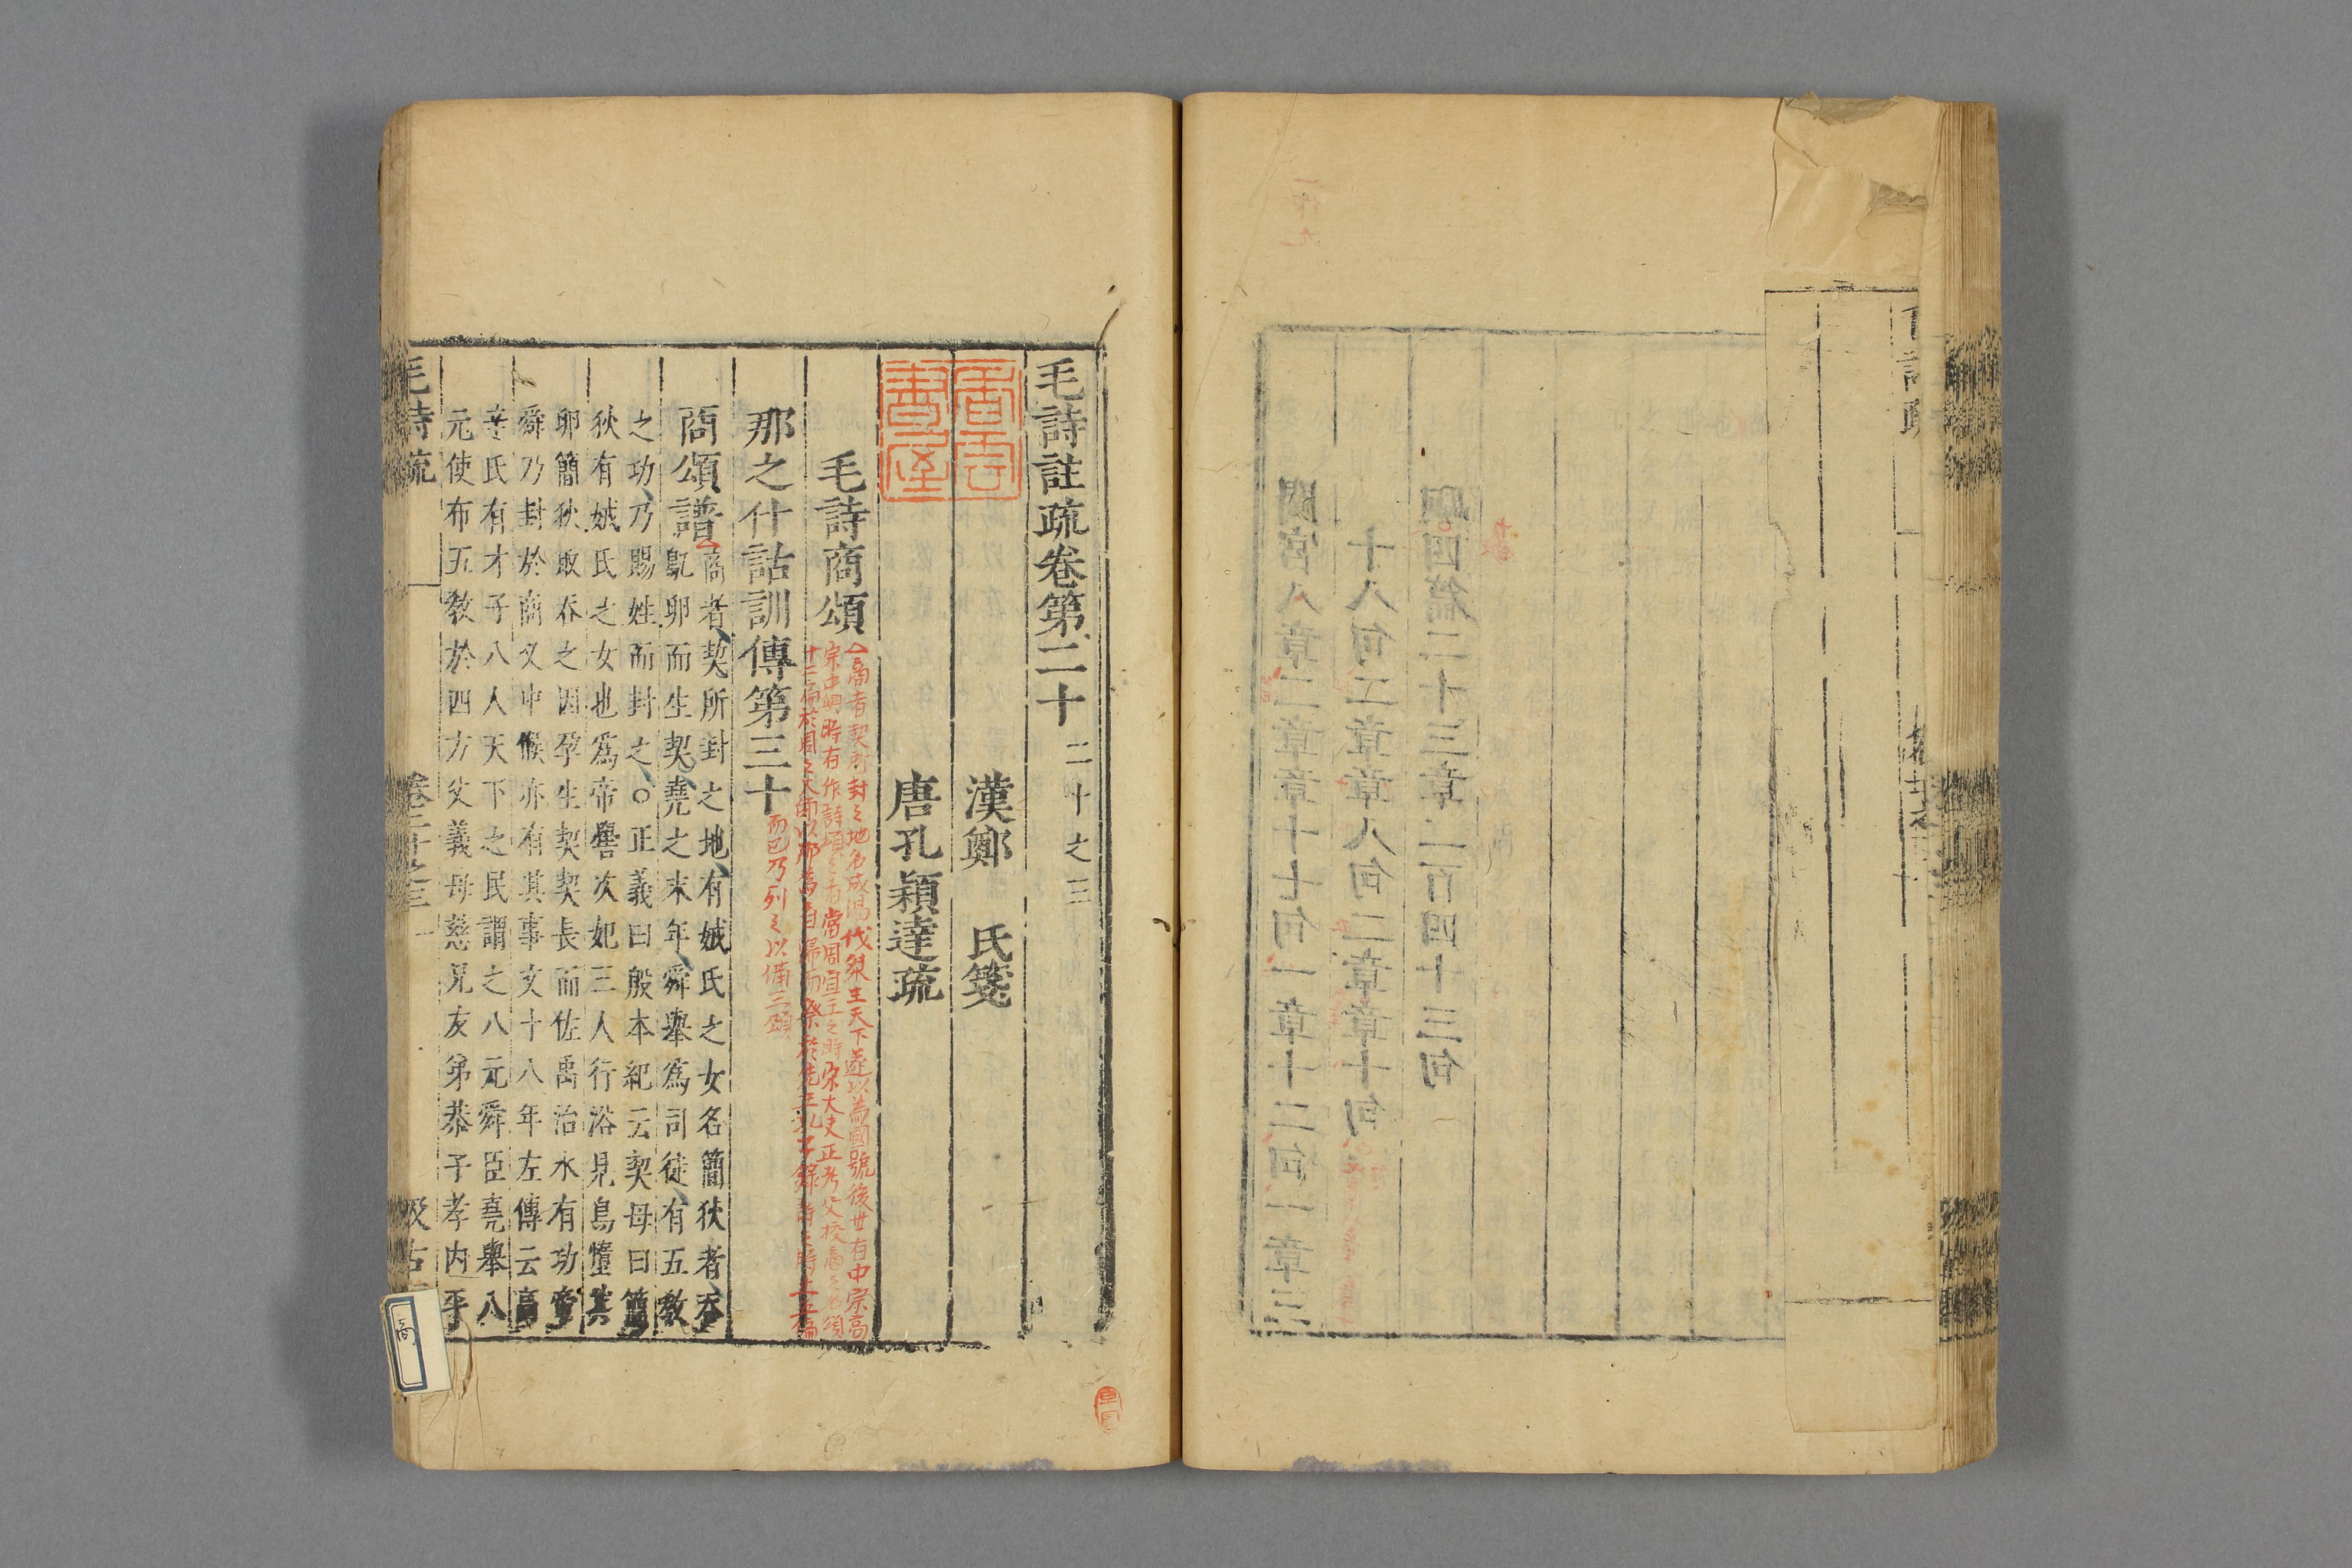 毛詩註疏卷第二十 二十之三
漢鄭 氏箋
唐孔穎達疏
毛詩商頌
△商者契所封之地名成湯伐桀王天下遂以為國號後世有中宗高
宗中興時有作詩頌之者當周宣王之時宋大夫正考父校商之名頌
十二篇於周之大師以那為首歸而祭於先王孔子錄詩之時止五篇
而已乃列之以備三頌
那之什詁訓傳第三十
商頌譜
商者契所封之地有娀氏之女名簡狄者吞
鳦卵而生契堯之末年舜舉為司徒有五教
之功乃賜姓而封之○正義曰殷本紀云契母曰簡
狄有娀氏之女也為帝嚳次妃三人行浴見鳥墮其
卵簡狄取吞之因孕生契契長而佐禹治水有功帝
舜乃封於商又中候亦有其事文十八年左傳云高
辛氏有才子八人天下之民謂之八元舜臣堯舉八
元使布五教於四方父義母慈兄友弟恭子孝內平
毛詩疏
卷二十之三
一
汲古
商
閟宮八章二章章十七句一章十二句一章三
十八句二章章八句二章章十句
駉四篇二十三章二百四十三句